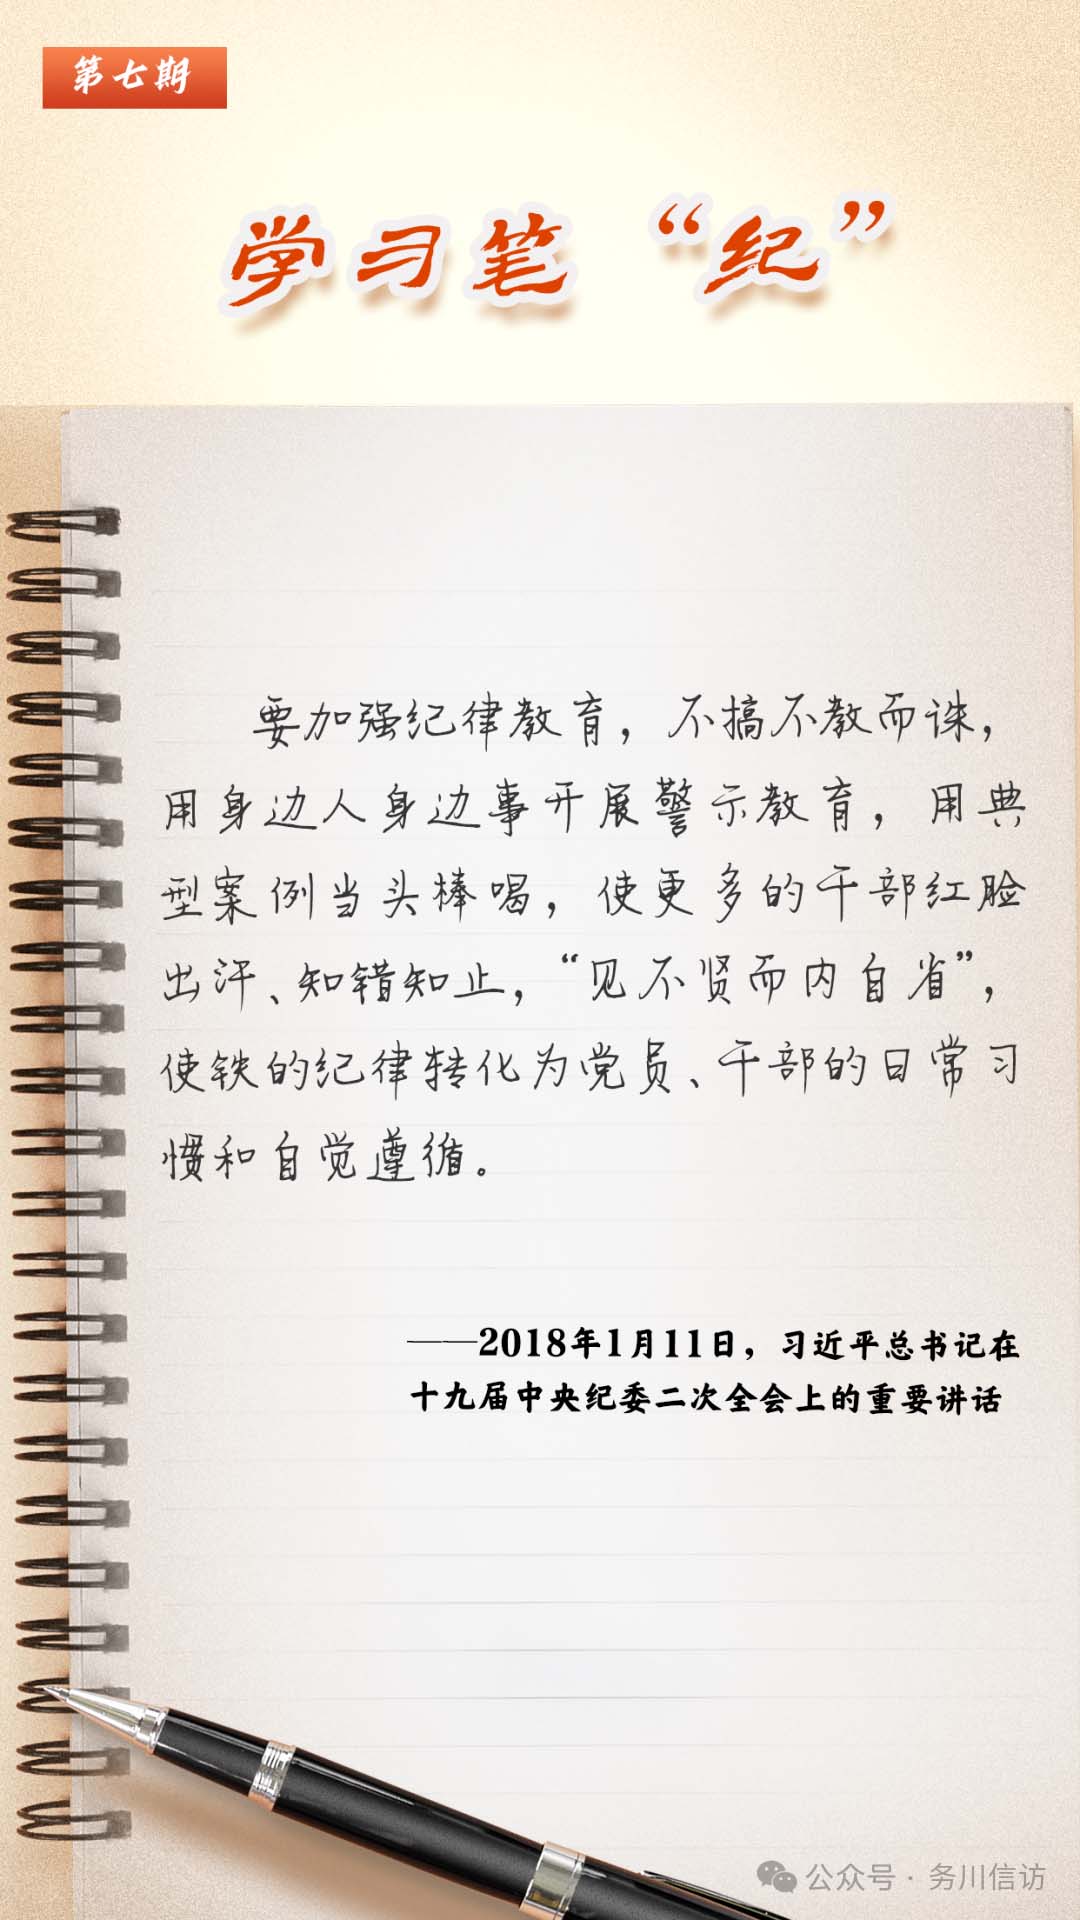 第七期
学习笔“纪”
要加强纪律教育，不搞不教而诛，
用身边人身边事开展警示教育，用典
型案例当头棒喝，使更多的干部红脸
出汗、知错知止，“见不贤而内自省”，
使铁的纪律转化为党员、干部的日常习
惯和自觉遵循。
——2018年1月11日，习近平总书记在
十九届中央纪委二次全会上的重要讲话
公众号·务川信访